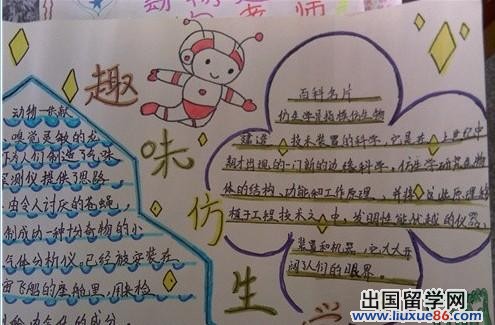 趣味仿生
动物的贡献
嗅觉灵敏的龙
为人们制造了气味
探测仪提供了思路
由令人讨厌的苍蝇,
制成功一种十分奇特的小
气体分析仪。已经被安装在
宙飞船的座舱里,用来检
舱内气体的成分。
百科名片
仿生学是指模仿生物
建造技术装置的科学,它是在上世纪中
期才出现的一门新的边缘科学,仿生学研究生物
体的结构、功能和工作原理,并将这些原理移
植于工程技术之中,发明性能优越的仪器、
装置和机器,它大大开
阔了人们的眼界。
出国留学网
www.liuxue86.com